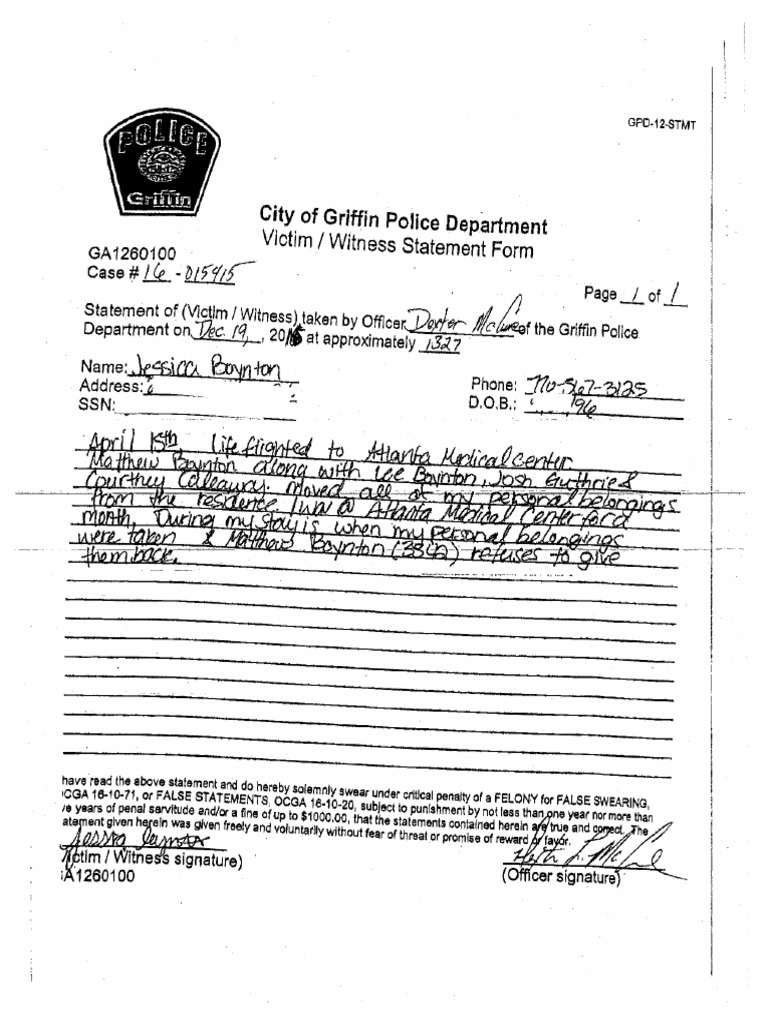 GPD-12-STMT
POLICE
Griffin
City of Griffin Police Department
Victim / Witness Statement Form
GA1260100
Case # 16 - 015415
Page 1 of 1
Statement of (Victim / Witness) taken by Officer Dexter of the Griffin Police
Department on Dec. 19, , 20 at approximately 1327
Name: Jessica Boynton
Address:
Phone: 770-567-3125
SSN:
D.O.B.: 96
April 15th Life flighted to Atlanta Medical center
Matthew Boynton along with Lee Boynton, Josh Guthrie &
Courtney Calleaway. Moved all of my personal belongings
from the residence. I wa @ Atlanta Medical Center for a
month, During my stay is when my personal belongings
were taken & Matthew Boynton refuses to give
them back.
have read the above statement and do hereby solemnly swear under critical penalty of a FELONY for FALSE SWEARING,
OCGA 16-10-71, or FALSE STATEMENTS, OCGA 16-10-20, subject to punishment by not less than one year nor more than
ve years of penal servitude and/or a fine of up to $1000.00, that the statements contained herein are true and correct. The
atement given herein was given freely and voluntarily without fear of threat or promise of reward or favor.
(Victim / Witness signature)
(Officer signature)
GA1260100